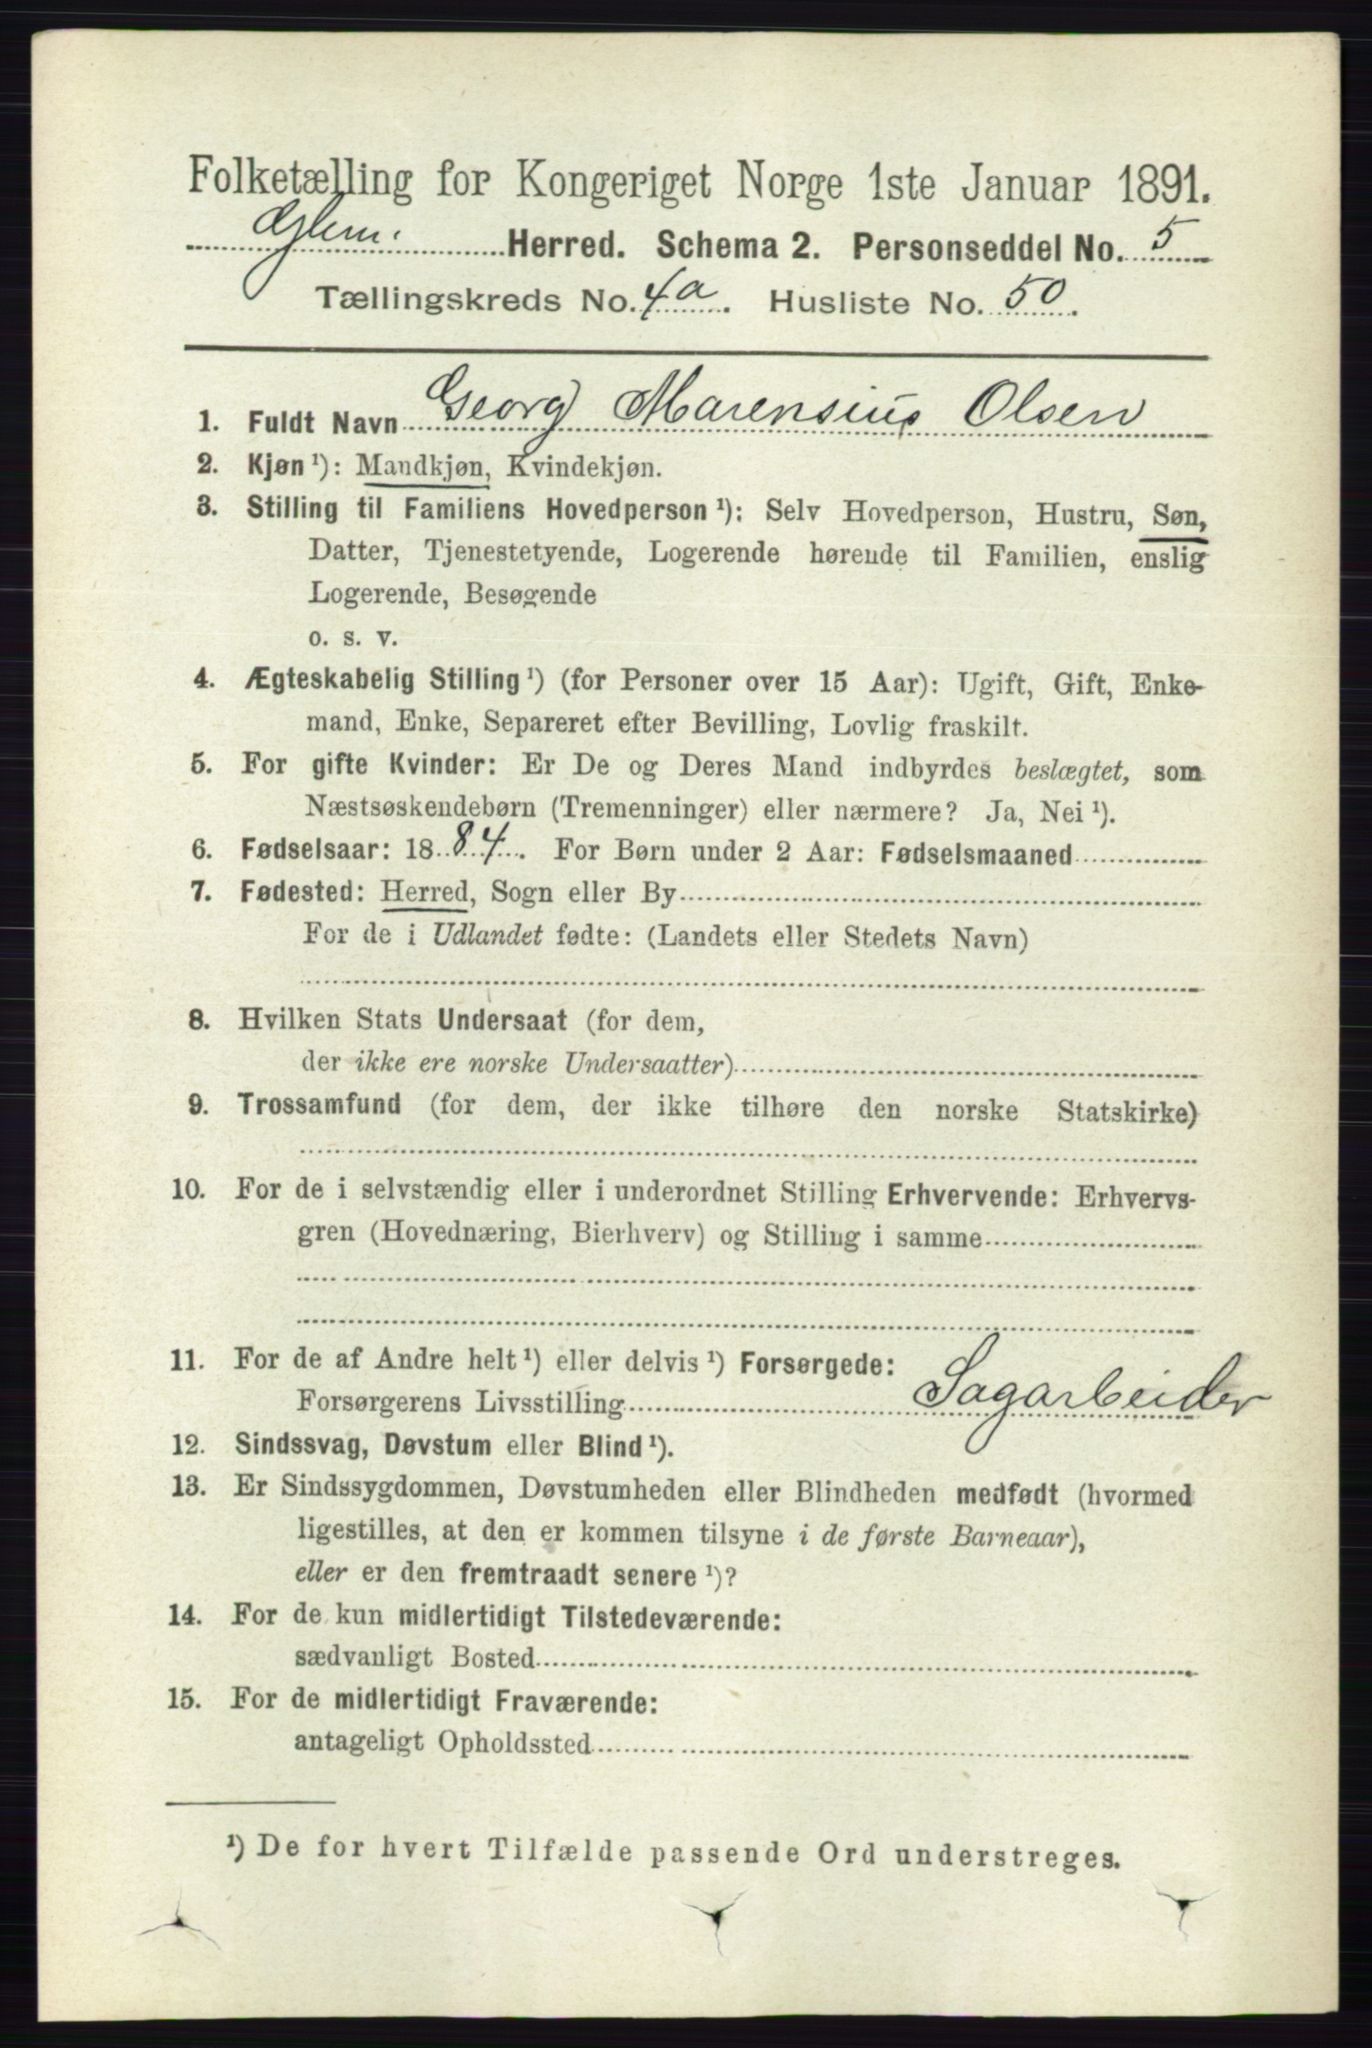 Folketælling for Kongeriget Norge 1ste Januar 1891.
Glem. Herred. Schema 2. Personseddel No. 5
Tællingskreds No. 4a. Husliste No. 50.
1. Fuldt Navn Georg Marensius Olsen
2. Kjøn ¹): Mandkjøn, Kvindekjøn.
3. Stilling til Familiens Hovedperson ¹): Selv Hovedperson, Hustru, Søn,
Datter, Tjenestetyende, Logerende hørende til Familien, enslig
Logerende, Besøgende
o. s. v.
4. Ægteskabelig Stilling ¹) (for Personer over 15 Aar): Ugift, Gift, Enke-
mand, Enke, Separeret efter Bevilling, Lovlig fraskilt.
5. For gifte Kvinder: Er De og Deres Mand indbyrdes beslægtet, som
Næstsøskendebørn (Tremenninger) eller nærmere? Ja, Nei ¹).
6. Fødselsaar: 1884. For Børn under 2 Aar: Fødselsmaaned
7. Fødested: Herred, Sogn eller By
For de i Udlandet fødte: (Landets eller Stedets Navn)
8. Hvilken Stats Undersaat (for dem,
der ikke ere norske Undersaatter)
9. Trossamfund (for dem, der ikke tilhøre den norske Statskirke)
10. For de i selvstændig eller i underordnet Stilling Erhvervende: Erhvervs-
gren (Hovednæring, Bierhverv) og Stilling i samme
11. For de af Andre helt ¹) eller delvis ¹) Forsørgede:
Forsørgerens Livsstilling Sagarbeider
12. Sindssvag, Døvstum eller Blind ¹).
13. Er Sindssygdommen, Døvstumheden eller Blindheden medfødt (hvormed
ligestilles, at den er kommen tilsyne i de første Barneaar),
eller er den fremtraadt senere ¹)?
14. For de kun midlertidigt Tilstedeværende:
sædvanligt Bosted
15. For de midlertidigt Fraværende:
antageligt Opholdssted
¹) De for hvert Tilfælde passende Ord understreges.